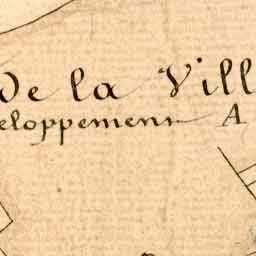 De la Vill
eloppement A